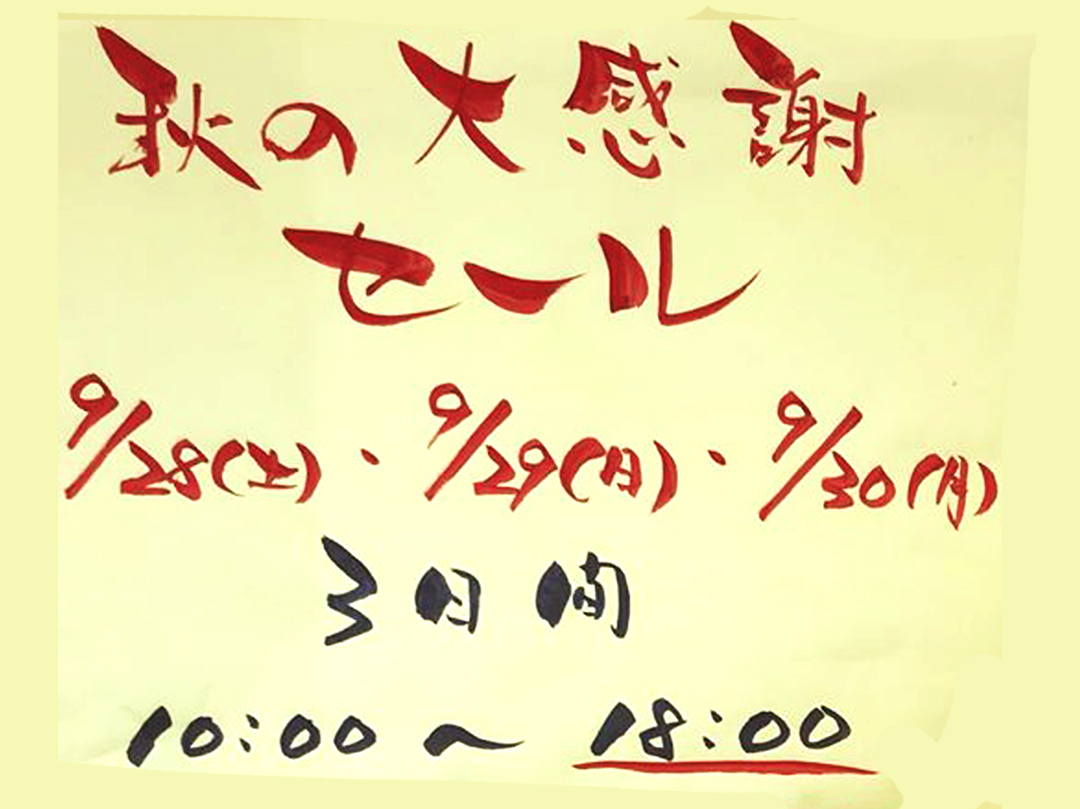 秋の大感謝
セール
9/28(土)・9/29(日)・9/30(月)
3日間
10:00〜18:00